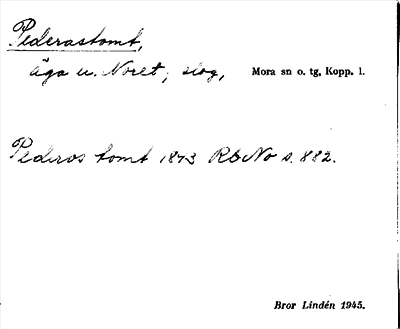 Pederastomt,
äga u. Noret, skog, Mora sn o. tg, Kopp. l.
Pederos tomt 1843 RbNo s. 882.
Bror Lindén 1945.